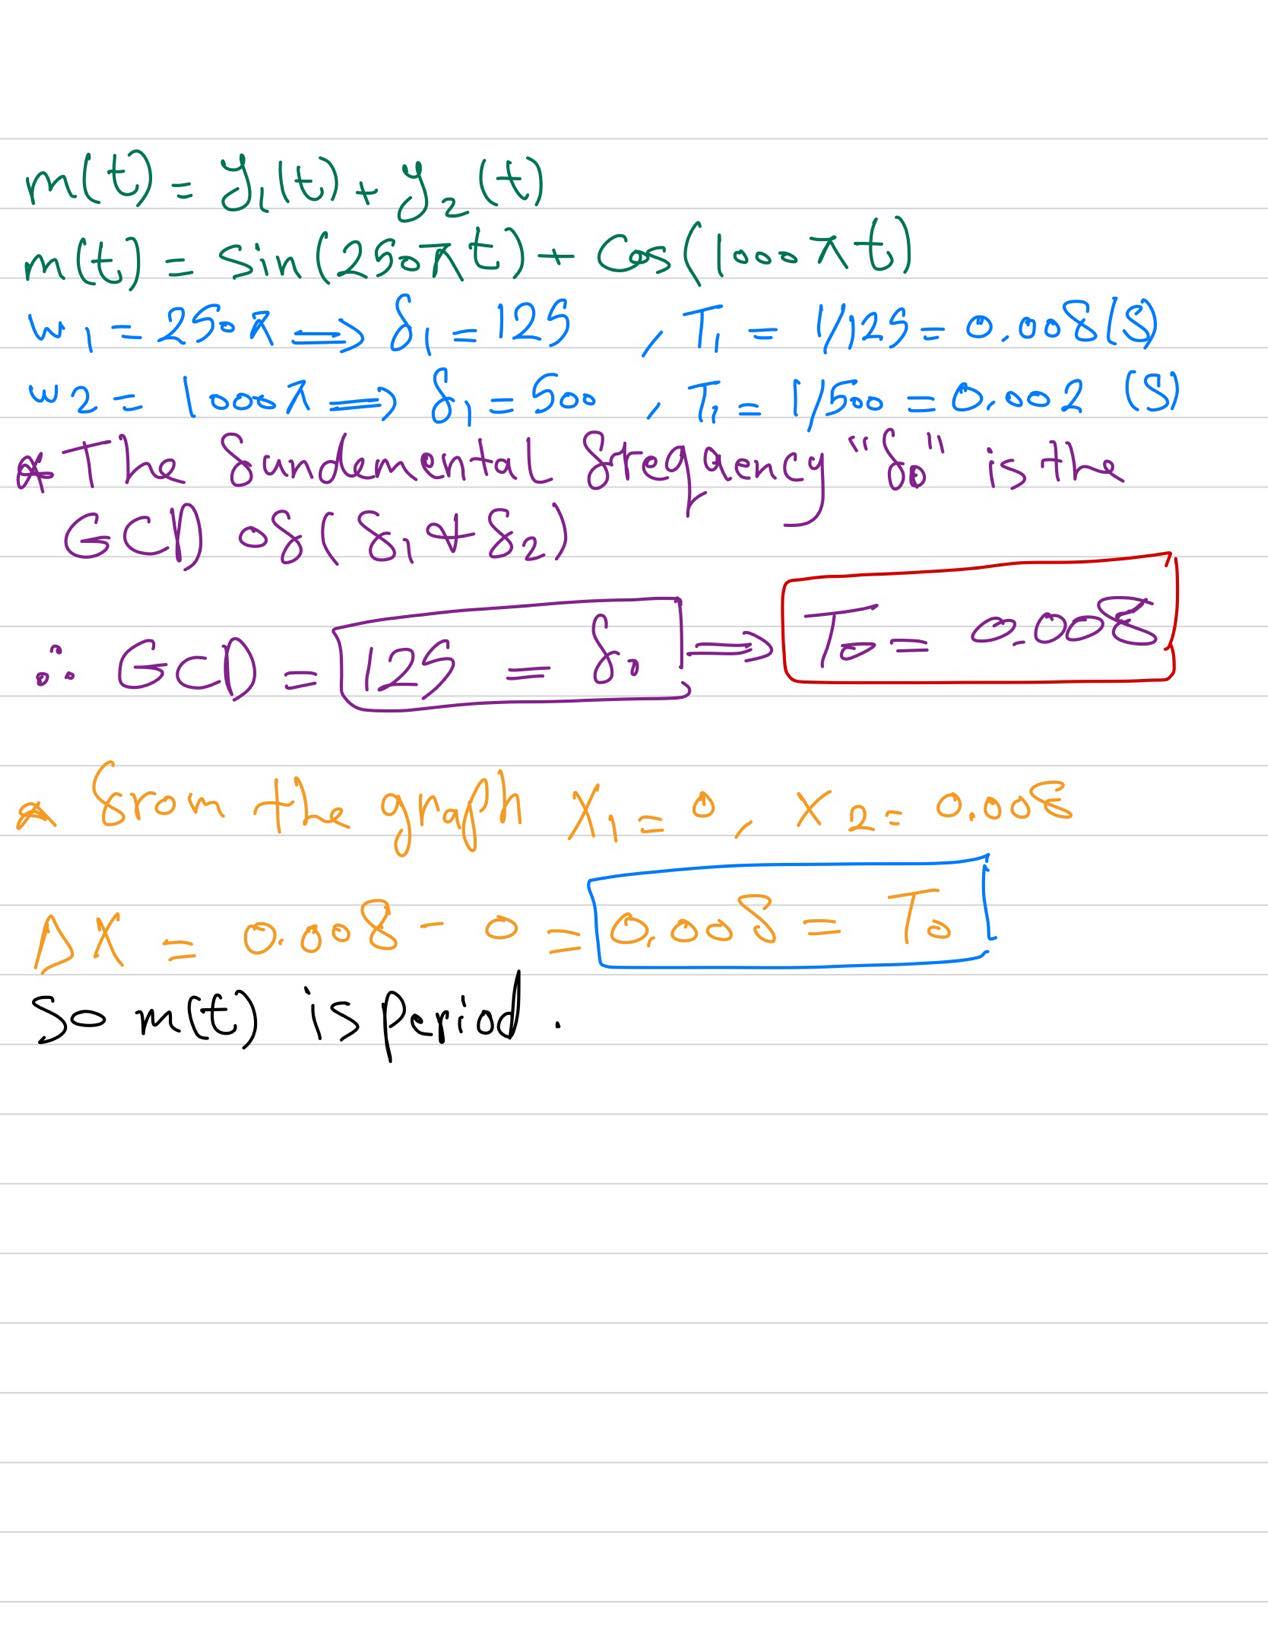 m(t) = y₁(t) + y₂(t)
m(t) = sin(250πt) + Cos(1000πt)
w₁ = 250π ⟹ f₁ = 125 , T₁ = 1/125 = 0.008(S)
w2 = 1000π ⟹ f₁ = 500 , T₁ = 1/500 = 0.002 (S)
* The fundemental freqqency "f₀" is the
GCD of (f₁ & f₂)
∴ GCD = 125 = f₀ ⟹ T₀ = 0.008
* from the graph X₁ = 0, X₂ = 0.008
ΔX = 0.008 - 0 = 0.008 = T₀
So m(t) is period.